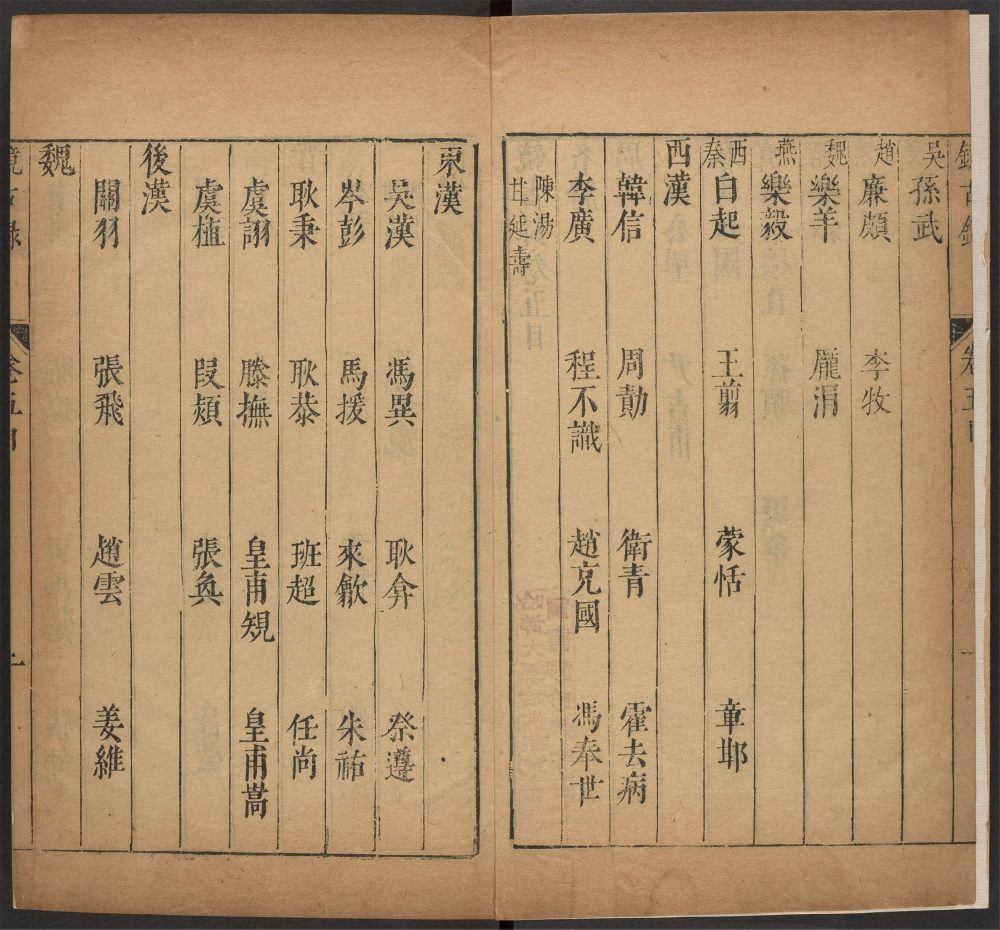 吳 孫武
趙 廉頗 李牧
魏 樂羊 龐涓
燕 樂毅
西秦 白起 王翦 蒙恬 章邯
西漢
韓信 周勃 衛青 霍去病
李廣 程不識 趙充國 馮奉世
陳湯 甘延壽
東漢
吳漢 馮異 耿弇 祭遵
岑彭 馬援 來歙 朱祐
耿秉 耿恭 班超 任尚
虞詡 滕撫 皇甫規 皇甫嵩
盧植 段熲 張奐
後漢
關羽 張飛 趙雲 姜維
魏